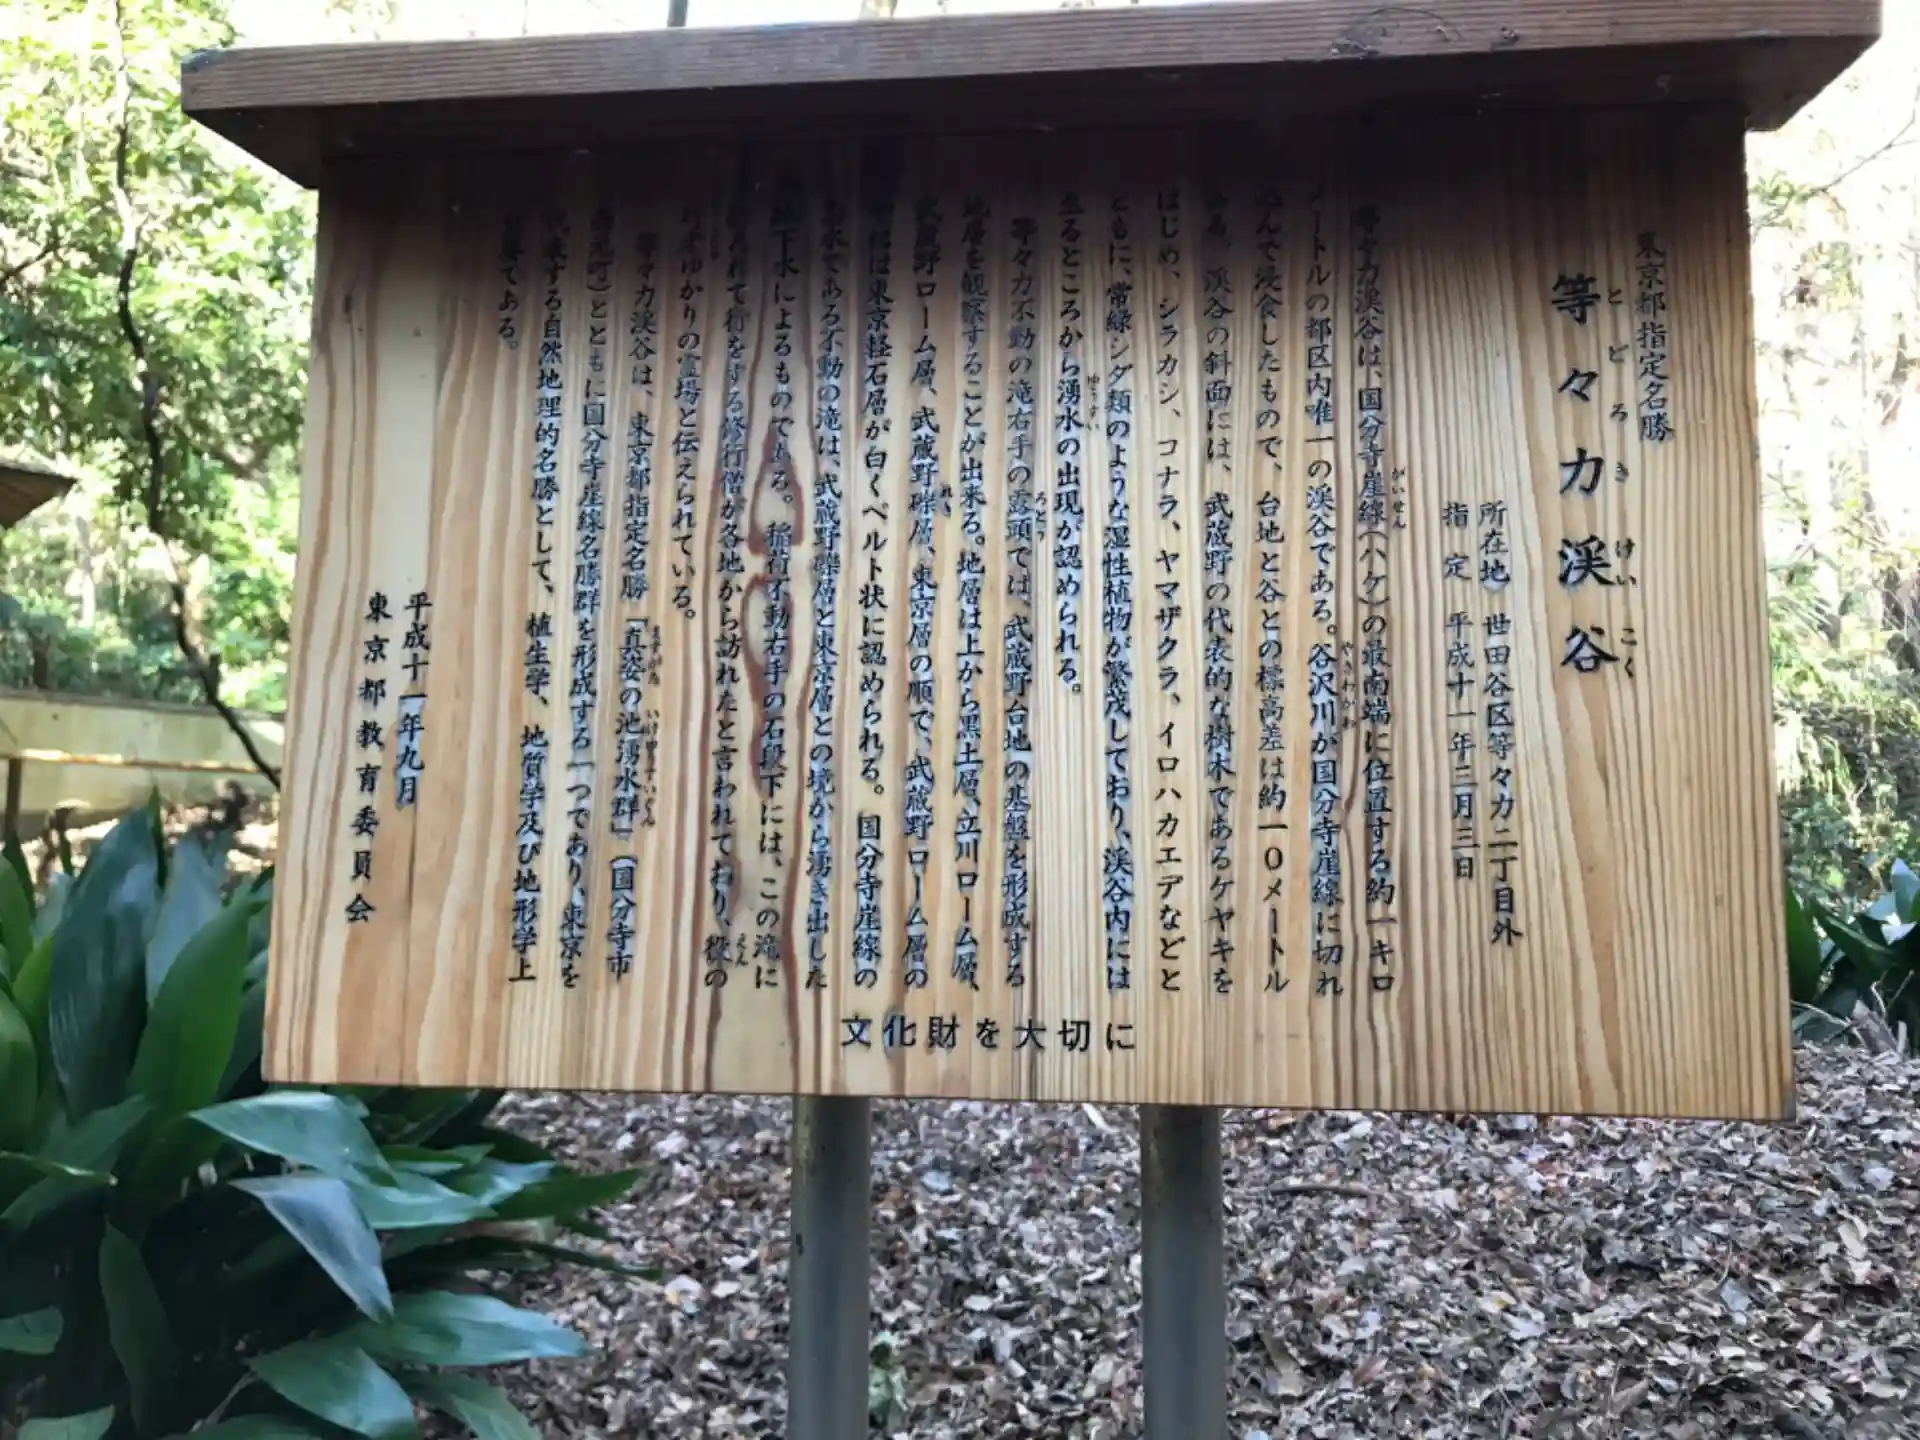 東京都指定名勝
等々力渓谷
とどろきけいこく
所在地 世田谷区等々力二丁目外
指定 平成十一年三月三日
等々力渓谷は、国分寺崖線(ハケ)の最南端に位置する約一キロ
がいせん
メートルの都区内唯一の渓谷である。谷沢川が国分寺崖線に切れ
やざわがわ
込んで浸食したもので、台地と谷との標高差は約一〇メートル
ある。渓谷の斜面には、武蔵野の代表的な樹木であるケヤキを
はじめ、シラカシ、コナラ、ヤマザクラ、イロハカエデなどと
ともに、常緑シダ類のような湿性植物が繁茂しており、渓谷内には
至るところから湧水の出現が認められる。
ゆうすい
等々力不動の滝右手の露頭では、武蔵野台地の基盤を形成する
ろとう
地層を観察することが出来る。地層は上から黒土層、立川ローム層、
武蔵野ローム層、武蔵野礫層、東京層の順で、武蔵野ローム層の
れき
には東京軽石層が白くベルト状に認められる。国分寺崖線の
湧水である不動の滝は、武蔵野礫層と東京層との境から湧き出した
地下水によるものである。稲荷不動右手の石段下には、この滝に
打たれて行をする修行僧が各地から訪れたと言われており、役の
えん
行者ゆかりの霊場と伝えられている。
等々力渓谷は、東京都指定名勝「真姿の池湧水群」(国分寺市
ますがたのいけゆうすいぐん
西元町)とともに国分寺崖線名勝群を形成する一つであり、東京を
代表する自然地理的名勝として、植生学、地質学及び地形学上
重要である。
平成十一年九月
東京都教育委員会
文化財を大切に